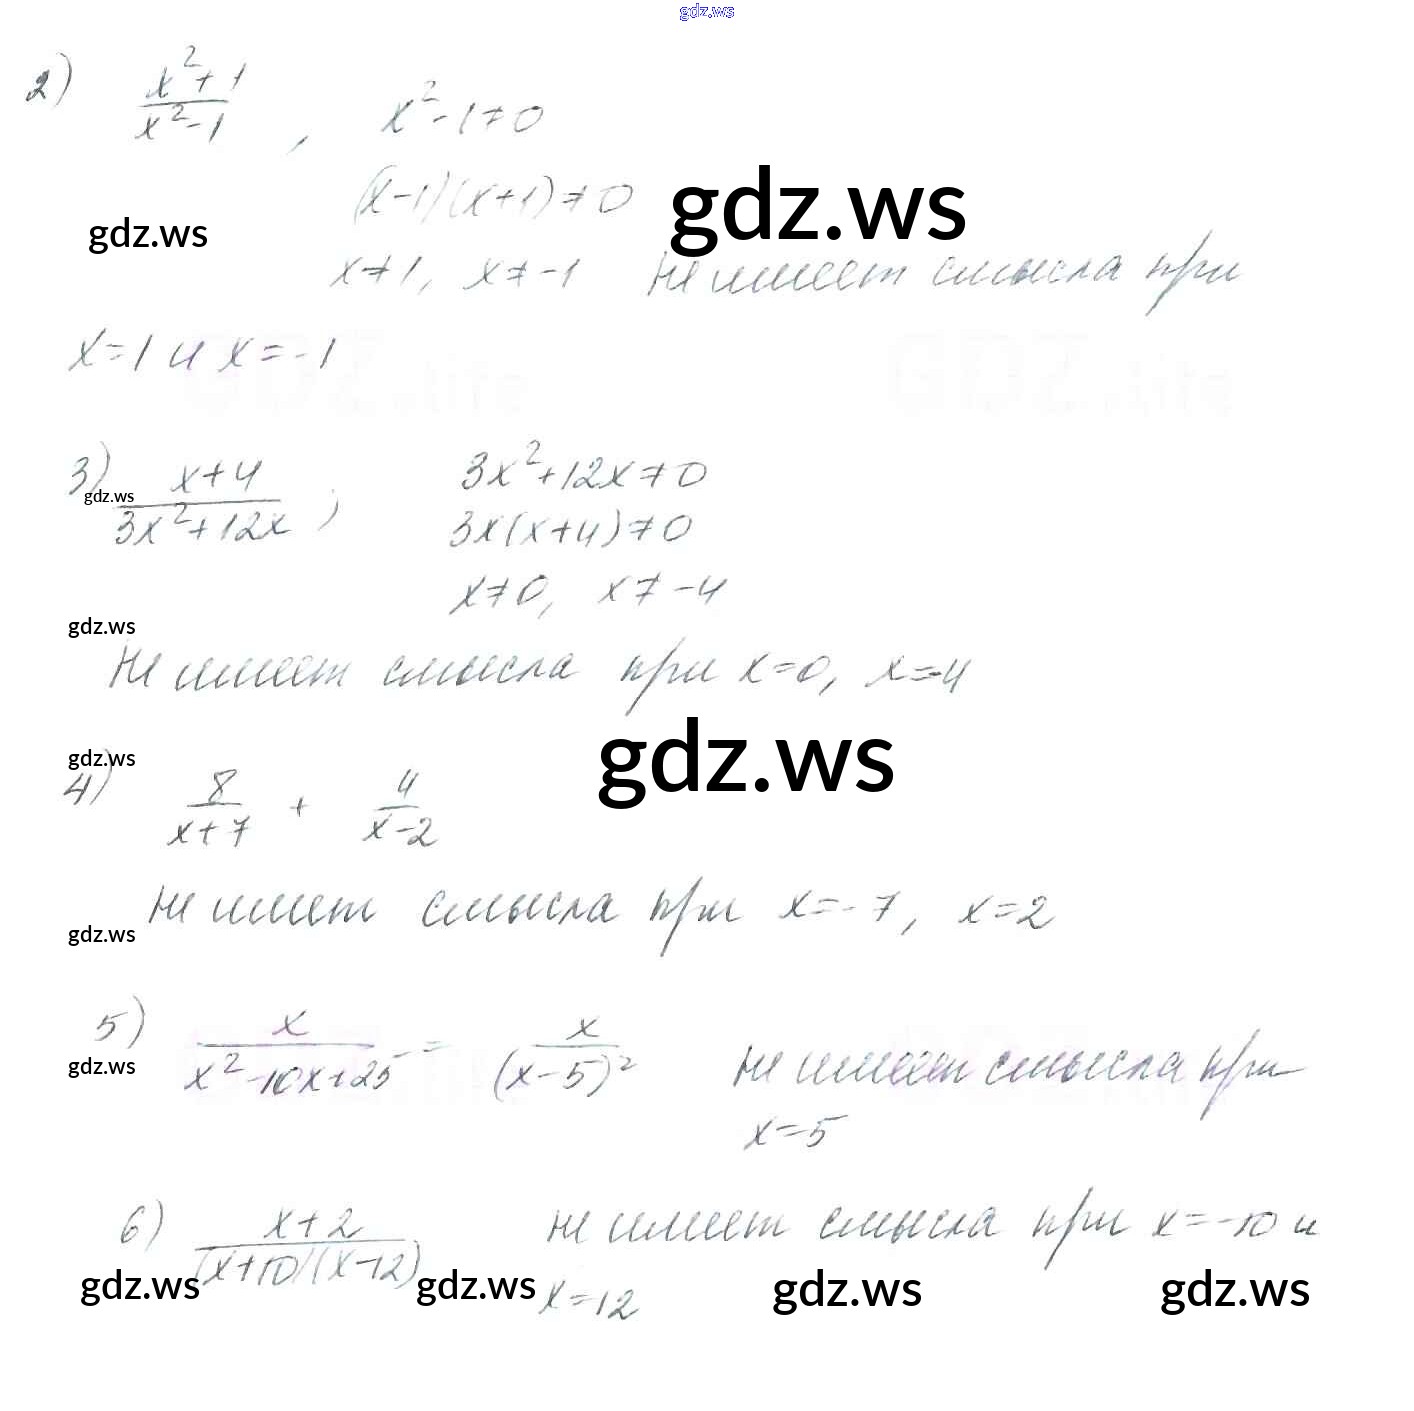 gdz.ws
2) x²+1 / x²-1 , x²-1≠0
(x-1)(x+1)≠0
gdz.ws
gdz.ws
x≠1, x≠-1 не имеет смысла при
x=1 и x=-1
GDZ.life GDZ.life
3) x+4 / 3x²+12x ; 3x²+12x≠0
gdz.ws
3x(x+4)≠0
x≠0, x≠-4
gdz.ws
Не имеет смысла при x=0, x=-4
gdz.ws
gdz.ws
4) 8 / x+7 + 4 / x-2
не имеет смысла при x=-7, x=2
gdz.ws
5) x / x²-10x+25 = x / (x-5)² не имеет смысла при
gdz.ws
x=5
6) x+2 / (x+10)(x-12) не имеет смысла при x=-10 и
x=12
gdz.ws gdz.ws gdz.ws gdz.ws